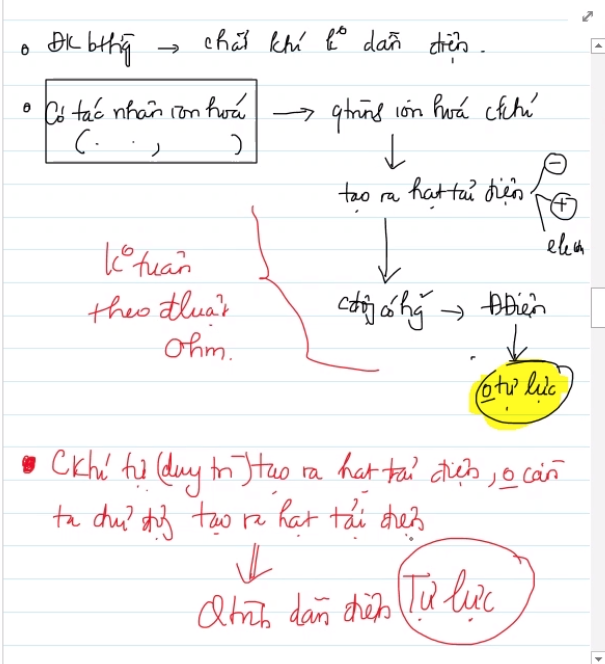 ĐK bthg → chất khí k° dẫn điện.
Có tác nhân ion hoá → qtrình ion hoá ckhí
(. . , )
tạo ra hạt tải điện ⊖
⊕
elec
k° tuân
theo đluật
Ohm.
cđộg có hg → DĐiện
o tự lực
Ckhí tự (duy trì) tạo ra hạt tải điện, o cần
ta chủ độg tạo ra hạt tải điện
⇓
Qtrình dẫn điện Tự lực